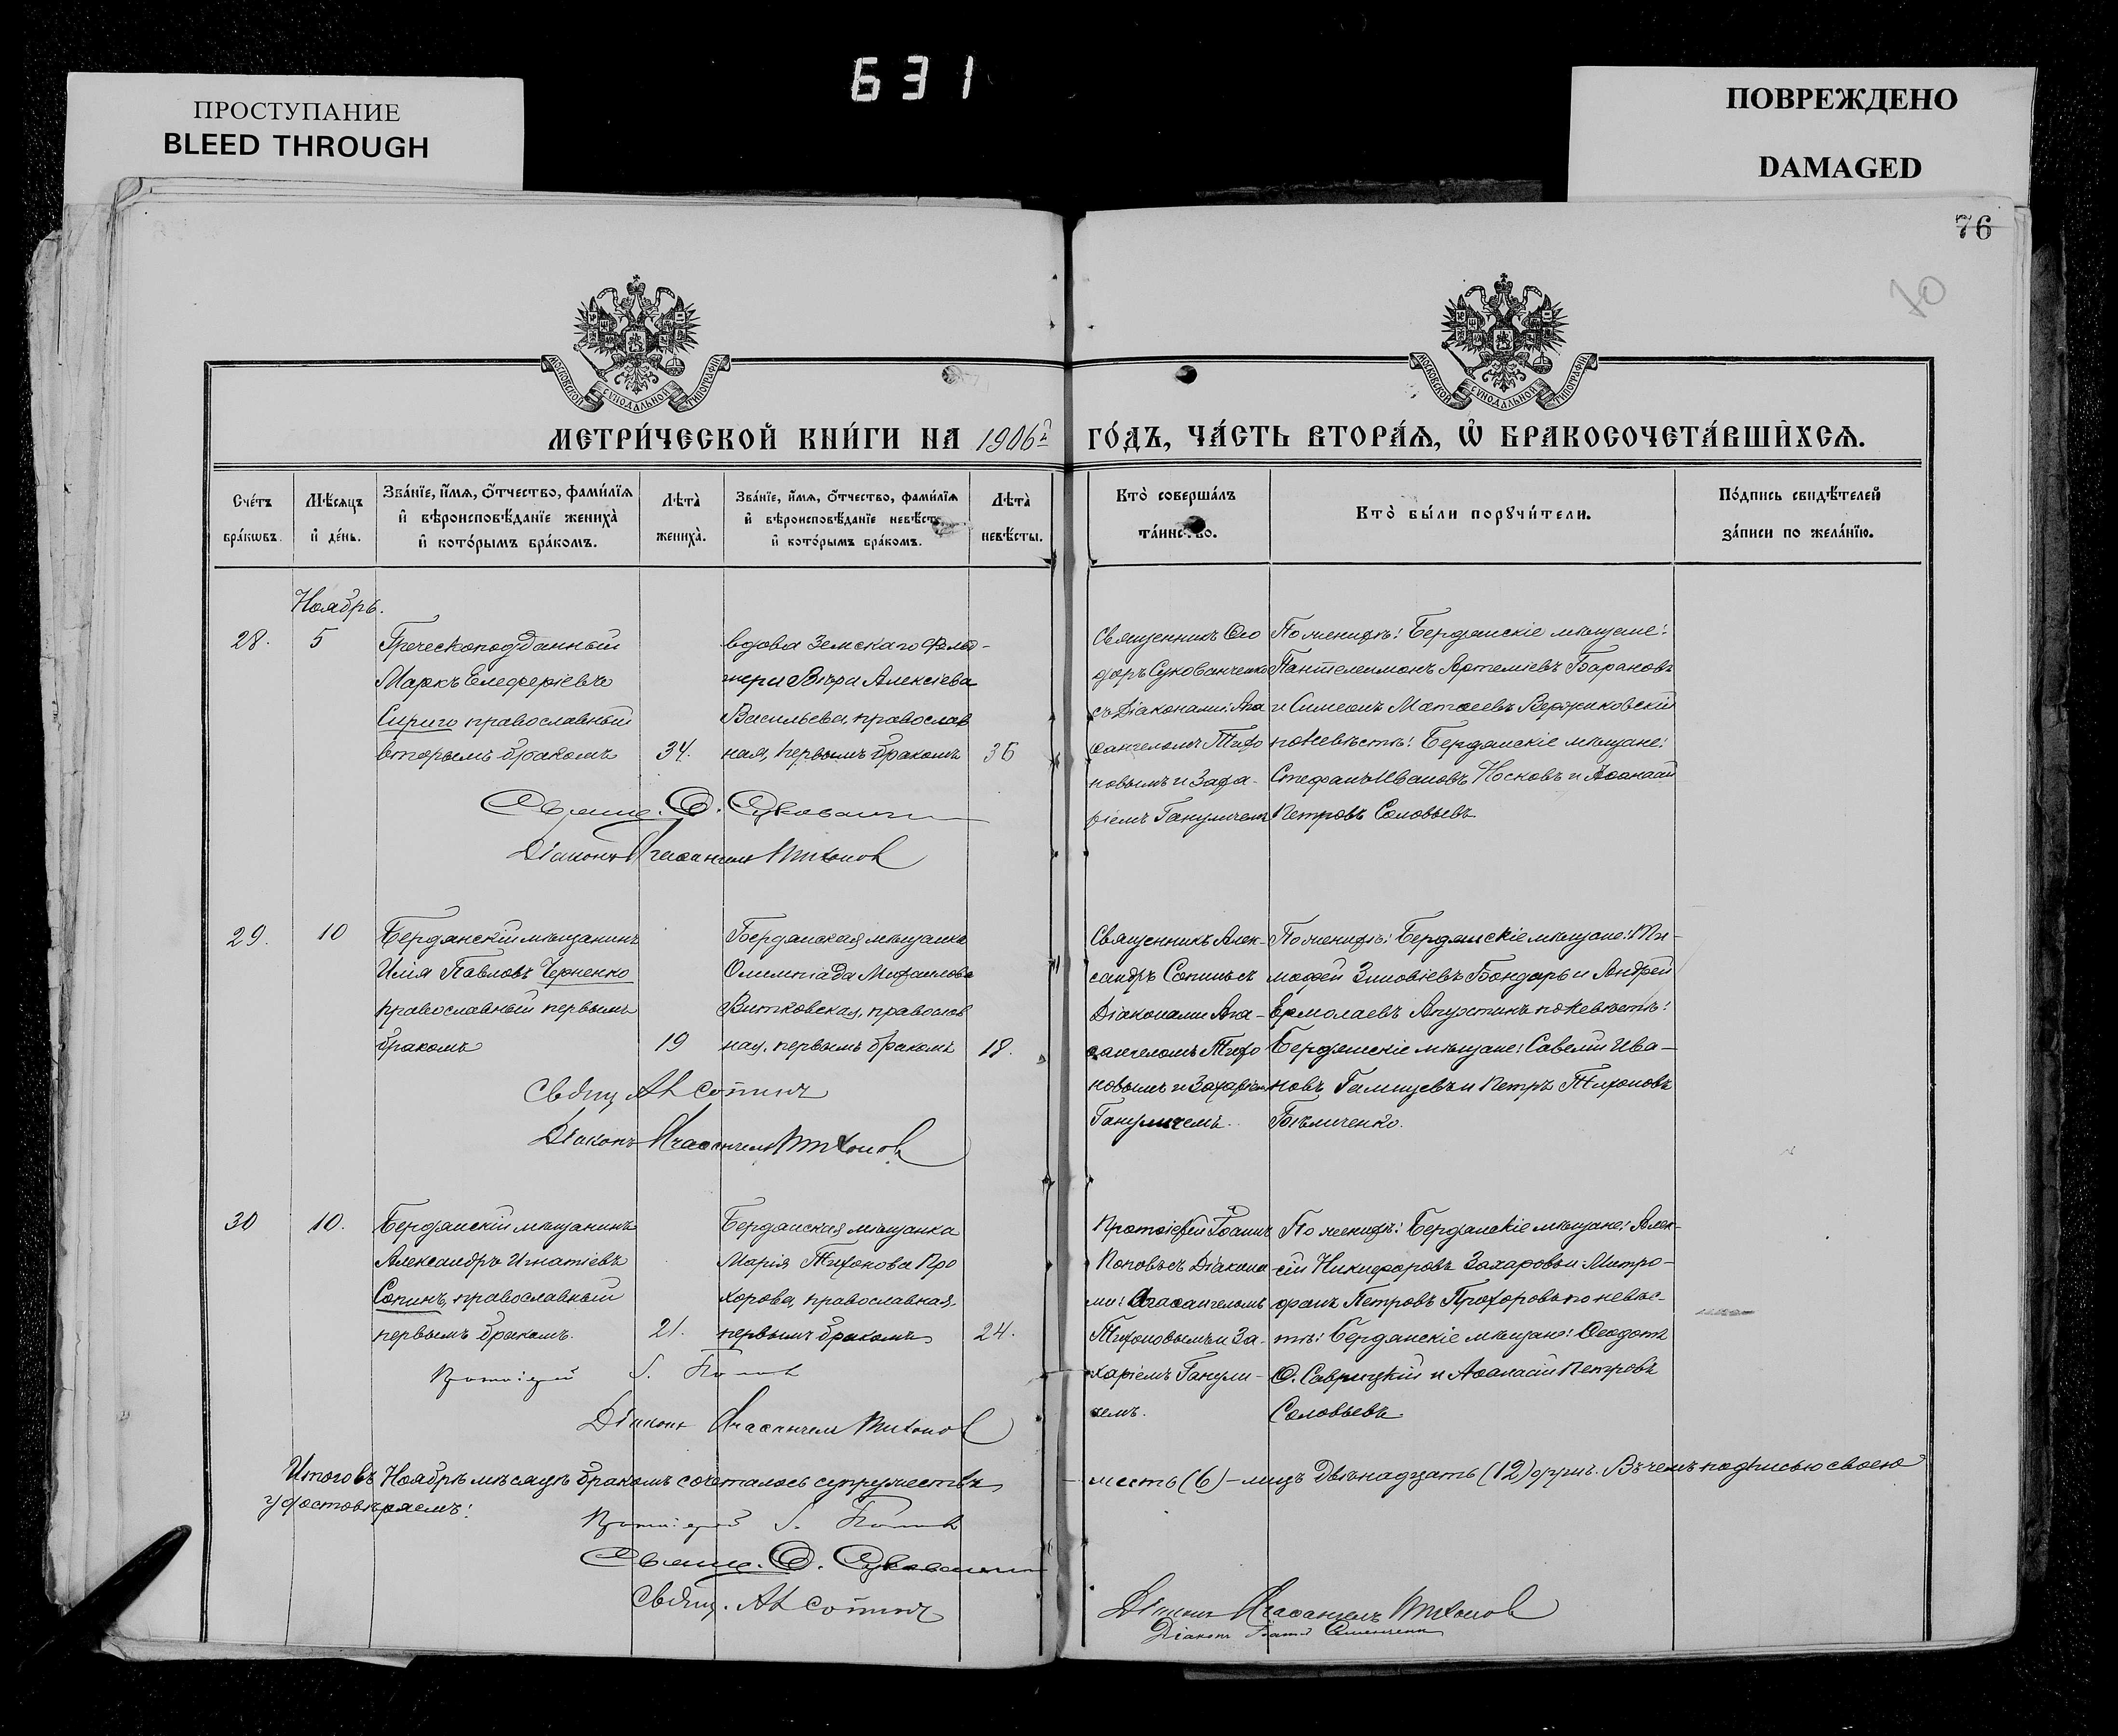 631
ПРОСТУПАНИЕ
BLEED THROUGH
ПОВРЕЖДЕНО
DAMAGED
76
10
МОСКОВСКОЙ СѴНОДАЛЬНОЙ ТИПОГРАФІИ
МОСКОВСКОЙ СѴНОДАЛЬНОЙ ТИПОГРАФІИ
МЕТРИ́ЧЕСКОЙ КНИ́ГИ НА 1906й ГО́ДЪ, ЧА́СТЬ ВТОРА́Я, Ѡ҆ БРАКОСОЧЕТА́ВШИХСЯ.
Сче́тъ бра́кѡвъ.
Мѣ́сяцъ и҆ де́нь.
Зва́нїе, и҆́мя, о҆́тчество, фами́лїя
и҆ вѣроисповѣ́данїе жениха̀
и҆ кото́рымъ бра́комъ.
Лѣта̀ жениха̀.
Зва́нїе, и҆́мя, о҆́тчество, фами́лїя
и҆ вѣроисповѣ́данїе невѣ́сты
и҆ кото́рымъ бра́комъ.
Лѣта̀ невѣ́сты.
Кто̀ соверша́лъ
та́инство.
Кто̀ бы́ли порꙋчи́тели.
По́дпись свидѣ́телей
за́писи по жела́нїю.
Ноябрь.
28.
5
Греческоподданный
Маркъ Елеферіевъ
Сириго православный
вторымъ бракомъ
34.
вдова Земскаго Фельд-
шера Вѣра Алексіева
Васильева, православ
ная, первымъ бракомъ
36
Священникъ Ѳео
доръ Сукованченко
съ Діаконами: Ага
ѳангеломъ Тихо
новымъ и Заха-
ріемъ Гануличемъ
По женихѣ: Бердянскіе мѣщане:
Пантелеимонъ Артеміевъ Барановъ
и Симеонъ Матѳеевъ Вержиковскій
по невѣстѣ: Бердянскіе мѣщане:
Стефанъ Ивановъ Носковъ и Аѳанасій
Петровъ Соловьевъ
Свящ. Ѳ. Сукован
Діаконъ Агаѳангелъ Тихонов
29.
10
Бердянскій мѣщанинъ
Илія Павловъ Черненко
православный первымъ
бракомъ
19
Бердянская мѣщанка
Олимпіада Михаилова
Витковская, православ
ная, первымъ бракомъ
18.
Священникъ Алек-
сандръ Сопинъ съ
Діаконами Ага-
ѳангеломъ Тихо
новымъ и Захаріемъ
Гануличемъ.
По женихѣ: Бердянскіе мѣщане: Ти-
моѳей Зиновіевъ Бондарь и Андрей
Ермолаевъ Апухтинъ по невѣстѣ:
Бердянскіе мѣщане: Савелій Ива-
новъ Галищевъ и Петръ Тихоновъ
Бѣличенко.
Свящ Ал Сопинъ
Діаконъ Агаѳангелъ Тихонов
30
10.
Бердянскій мѣщанинъ
Александръ Игнатіевъ
Сопинъ, православный
первымъ бракомъ.
21.
Бердянская мѣщанка
Марія Тихонова Про
хорова, православная,
первымъ бракомъ
24.
Протоіерей Іоаннъ
Поповъ съ Діакона
ми: Агаѳангеломъ
Тихоновымъ и За-
харіемъ Ганули-
чемъ.
По женихѣ: Бердянскіе мѣщане: Алек-
сій Никифоровъ Захаровъ и Митро-
фанъ Петровъ Прохоровъ по невѣс-
тѣ: Бердянскіе мѣщане: Ѳеодотъ
Ѳ. Саврицкій и Аѳанасій Петровъ
Соловьевъ
Протоіерей І. Попов
Діаконъ Агаѳангелъ Тихонов
Итого въ Ноябрѣ мѣсяцѣ бракомъ сочеталось супружествъ шесть (6) – лицъ двѣнадцать (12) Въ чемъ подписью своею
удостовѣряемъ:
Протоіерей І. Попов
Свящ. Ѳ. Сукован
Свящ. Ал Сопинъ
Діаконъ Агаѳангелъ Тихонов
Діаконъ